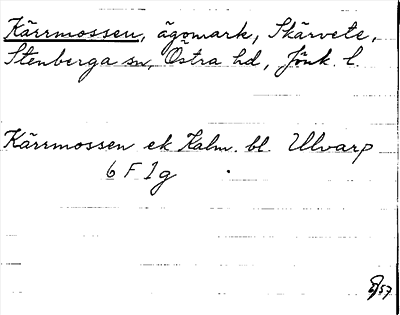 Kärrmossen, ägomark, Skärvete,
Stenberga sn, Östra hd, Jönk. l.
Kärrmossen ek Kalm. bl. Ulvarp
6 F 1g
57